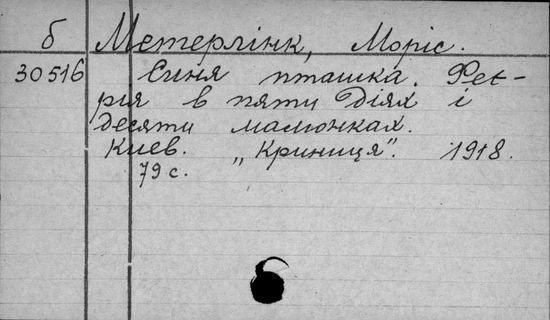 б Метерлінк, Моріс.
30516 Синя пташка. Фее-
рія в пяти діях і
десяти малюнках.
Киев. „Криниця". 1918.
79 с.